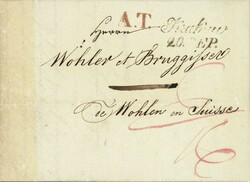 A.T.
Herren
20. SEP.
Wohler et Bruggisser
de Wohlen en Suisse